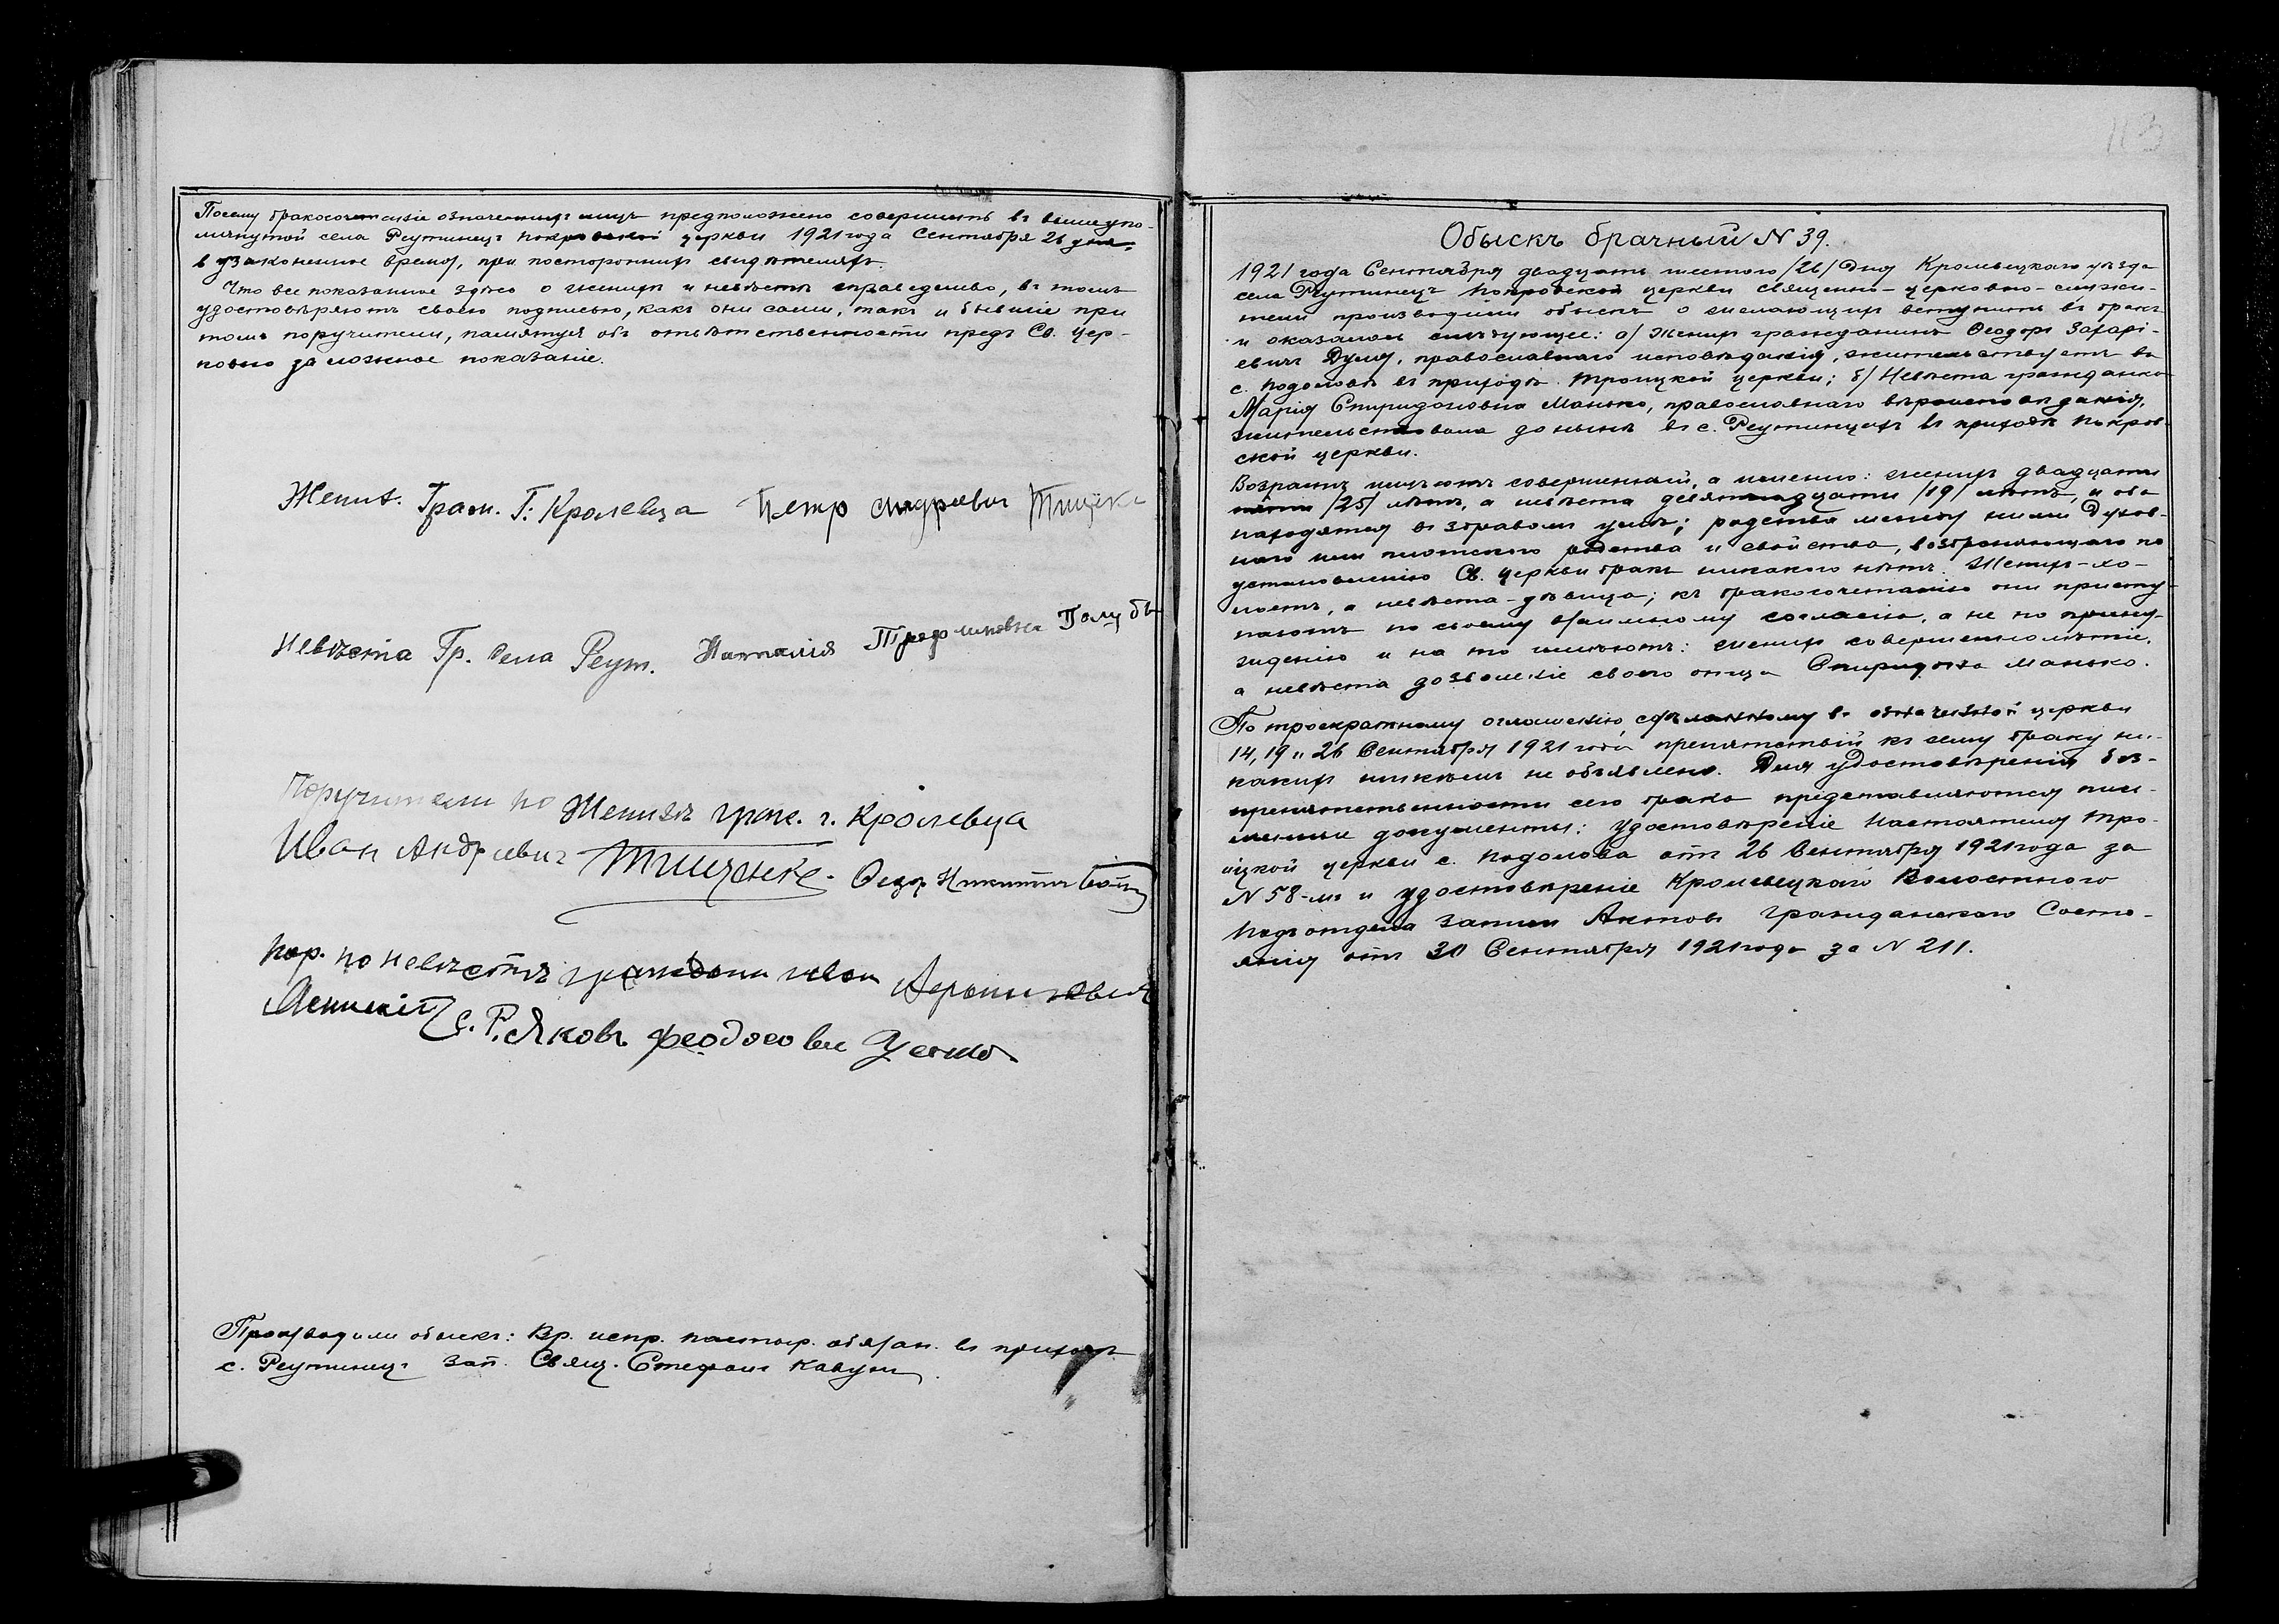 Посему бракосочетаніе означенныхъ лицъ предположено совершить въ вышеупо-
мянутой села Реутинецъ Покровской церкви 1921 года Сентября 26 дня,
в узаконенное время, при постороннихъ свидѣтеляхъ.
Что все показанное здѣсь о женихѣ и невѣстѣ справедливо, въ томъ
удостовѣряютъ своею подписью, какъ они сами, такъ и бывшіе при
томъ поручители, памятуя объ отвѣтственности предъ Св. Цер-
ковью за ложное показаніе.
Жених. Граж. Г. Кролевца Петр Андреевич
Невѣста Гр. Села Реут. Наталія
Поручители по Женихѣ граж. г. Кролевца
Иван Андреевич Тищенко. Никитич
Пор. по невѣстѣ
с. Р. Яковъ
Производили обыскъ: Вр. испр. пастыр. обязан. въ приходѣ
с. Реутинец зап. Свящ. Стефанъ Кавун
113
Обыскъ брачный N 39.
1921 года Сентября двадцать шестого /26/ Дня Кролевецкаго уѣзда
села Реутинецъ Покровской церкви священно-церковно-служи-
тели производили обыскъ о желающихъ вступить въ бракъ
и оказалось слѣдующее: а/ Женихъ гражданинъ Ѳеодоръ Захарі-
евич Дуля, православнаго исповѣданія, жительствуетъ въ
с. Подоловѣ въ приходѣ Троицкой церкви; б/ Невѣста гражданка
Марія Спиридоновна Манько, православнаго вѣроисповѣданія,
жительствовала донынѣ въ с. Реутинцахъ въ приходѣ Покров-
ской церкви.
Возрастъ имѣютъ совершенный, а именно: женихъ двадцати
пяти /25/ лѣтъ, а невѣста девятнадцати /19/ лѣтъ, и оба
находятся въ здравомъ умѣ; родства между ними Духов-
наго или плотского родства и свойства, возбраняющаго по
установленію Св. церкви бракъ никакого нѣтъ. Женихъ-хо-
лостъ, а невѣста-дѣвица; къ бракосочетанію они присту-
паютъ по своему взаимному согласію, а не по принуж-
дению и на то имѣютъ: женихъ совершеннолѣтіе,
а невѣста дозволеніе своего отца Спиридона Манько.
По троекратному оглашенію, сдѣланному въ означенной церкви
14, 19 и 26 Сентября 1921 года препятствій къ сему браку ни-
какихъ никѣмъ не объявлено. Для удостовѣренія без-
препятственности сего брака представляются пись-
менные документы: Удостовѣреніе Настоятеля Тро-
ицкой церкви с. Подолова отъ 26 Сентября 1921 года за
N 58-мъ и удостовѣреніе Кролевецкаго Волостного
Подъотдела Записи Актовъ Гражданского Состо-
янія отъ 30 Сентября 1921 года за N 211.